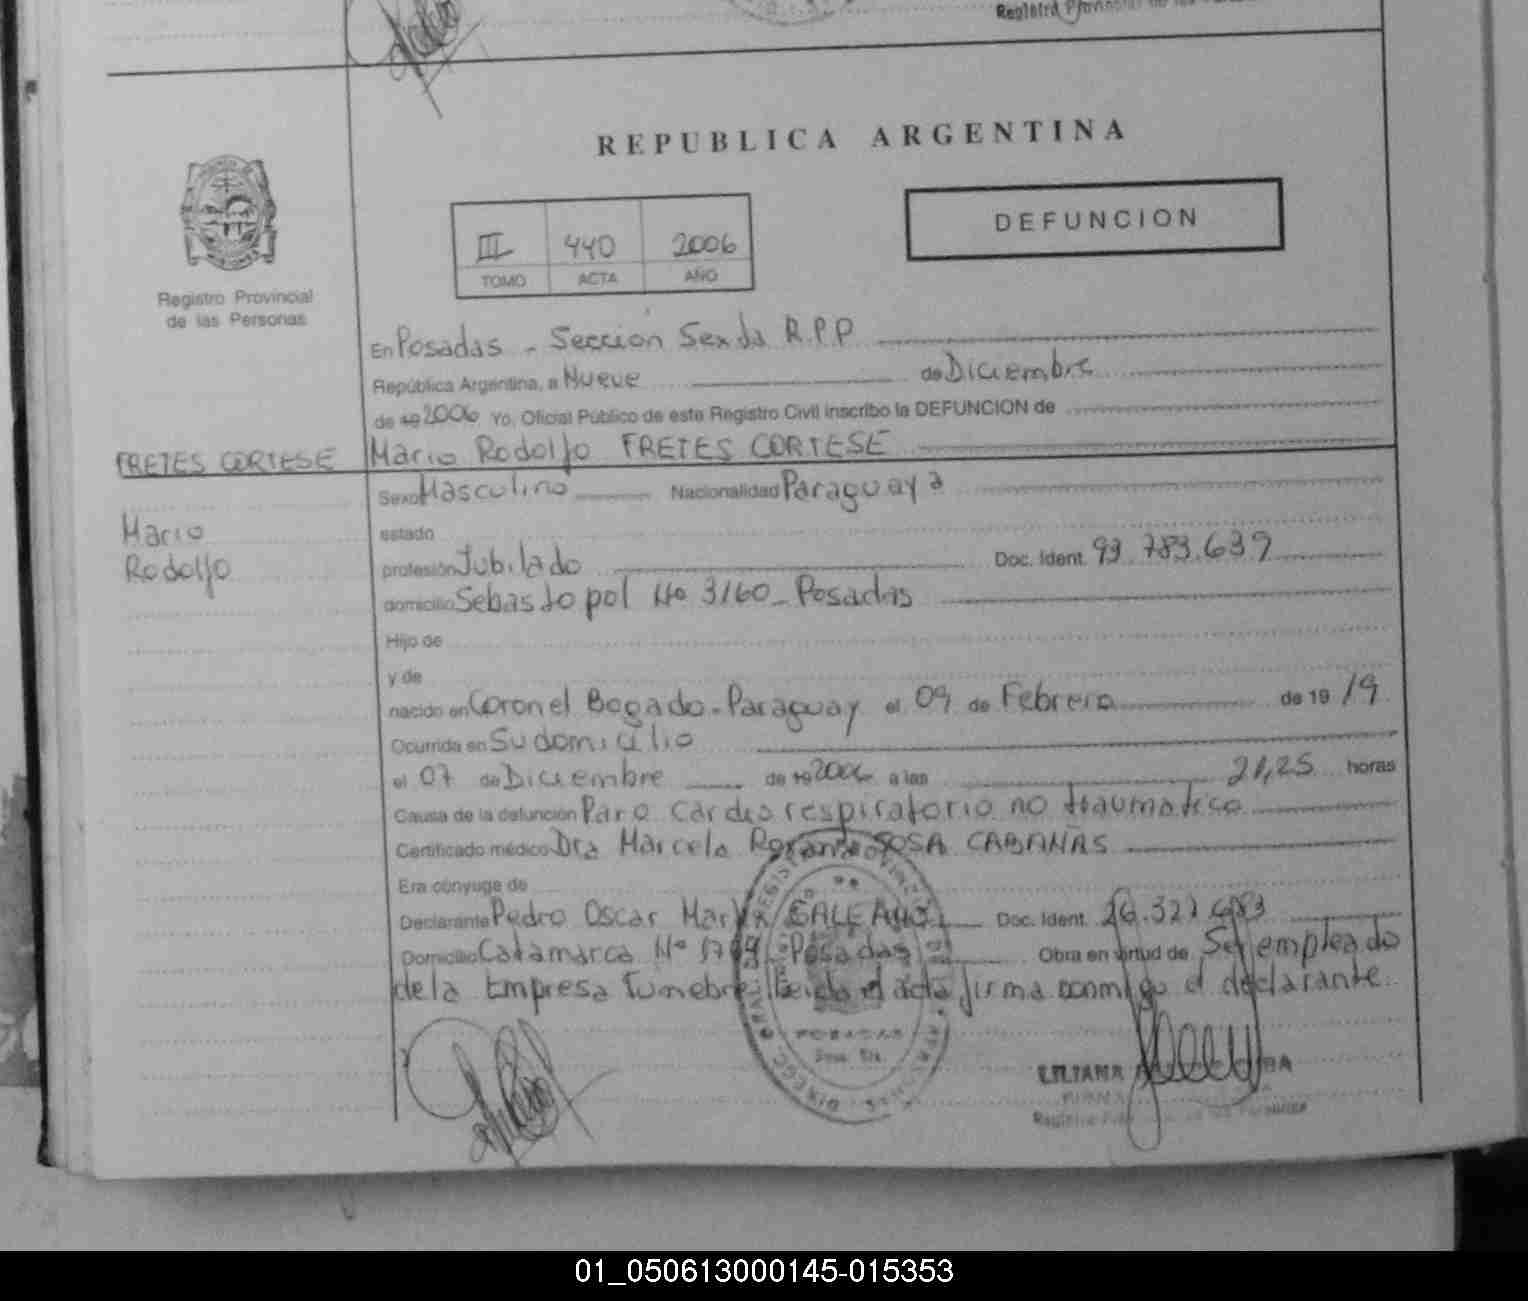 Registro Provincial de las
REPUBLICA ARGENTINA
DEFUNCION
III 440 2006
TOMO ACTA AÑO
Registro Provincial
de las Personas
En Posadas - Sección Sexta R.P.P
República Argentina, a Nueve de Diciembre
de 19 2006 Yo, Oficial Público de este Registro Civil inscribo la DEFUNCION de
FRETES CORTESE Mario Rodolfo FRETES CORTESE
Sexo Masculino Nacionalidad Paraguaya
Mario estado
Rodolfo profesión Jubilado Doc. Ident. 93.783.639
domicilio Sebastopol Nº 3160 - Posadas
Hijo de
y de
nacido en Coronel Bogado - Paraguay el 09 de Febrero de 19 19
Ocurrida en Su domicilio
el 07 de Diciembre de 19 2006 a las 21,25 horas
Causa de la defunción Paro cardio respiratorio no traumatico
Certificado médico Dra Marcela Roxana SOSA CABAÑAS
Era cónyuge de
Declarante Pedro Oscar GALEANO Doc. Ident.
Domicilio Catamarca Nº Posadas Obra en virtud de Ser empleado
de la Empresa Funebre Leida el acta firma conmigo el declarante.
POSADAS
LILIANA
01_050613000145-015353